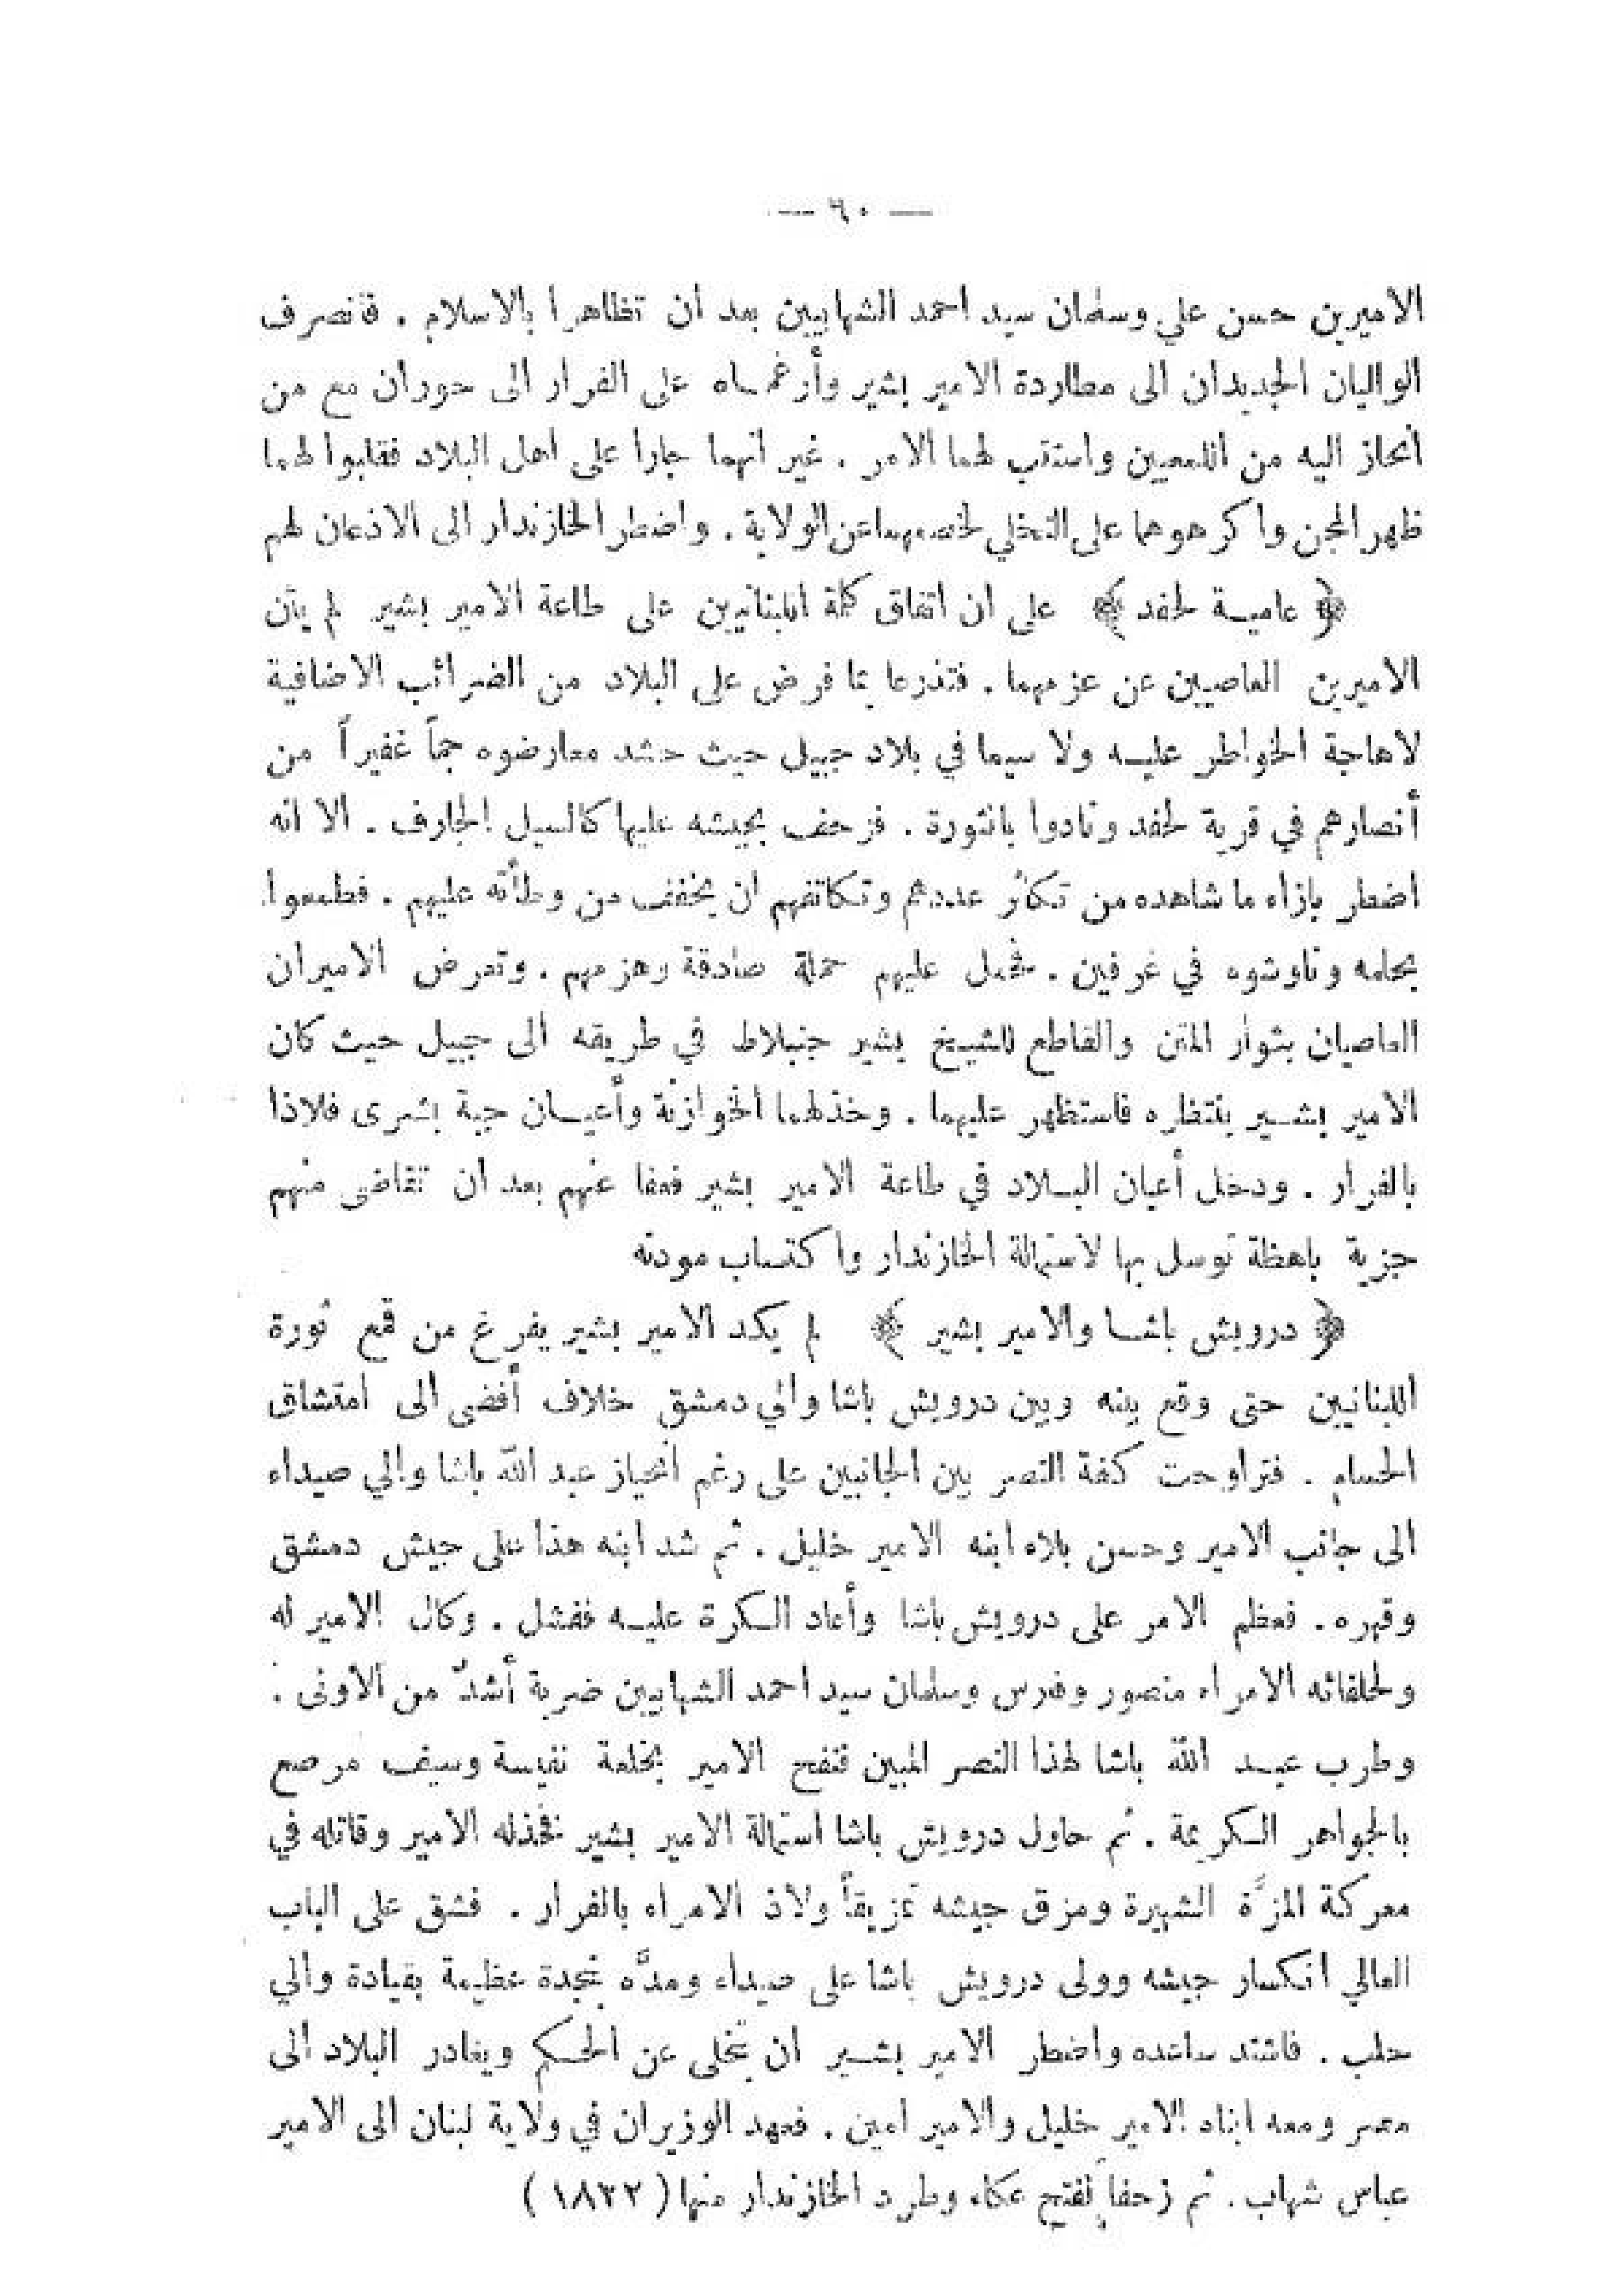 — ٦٠ —
الأميرين حسن علي وسلمان سيد احمد الشهابيين بعد أن تظاهرا بالاسلام . فانصرف
الواليان الجديدان الى مطاردة الامير بشير وأرغماه على الفرار الى حوران مع من
أنحاز اليه من اللمعيين واستتب لهما الامر . غير أنهما جارا على اهل البلاد فقلبوا لهما
ظهر المجن واكرهوهما على التخلي لخصمهما عن الولاية . واضطر الخازندار الى الاذعان لهم
﴿ عامية لحفد ﴾ على ان اتفاق كلمة اللبنانيين على طاعة الامير بشير لم يثن
الاميرين العاصيين عن عزمهما . فتذرعا بما فرض على البلاد من الضرائب الاضافية
لاهاجة الخواطر عليه ولا سيما في بلاد جبيل حيث حشد معارضوه جماً غفيراً من
أنصارهم في قرية لحفد ونادوا بالثورة . فزحف بجيشه عليها كالسيل الجارف . الا انه
اضطر بازاء ما شاهده من تكاثر عددهم وتكاتفهم ان يخفف من وطأته عليهم . فطمعوا
بحلمه وناوشوه في غرفين . فحمل عليهم حملة صادقة وهزمهم . وتعرض الاميران
العاصيان بثوار المتن والقاطع للشيخ بشير جنبلاط في طريقه الى جبيل حيث كان
الامير بشير ينتظره فاستظهر عليهما . وخذلهما الخوازنة وأعيان جبة بشرى فلاذا
بالفرار . ودخل أعيان البلاد في طاعة الامير بشير فعفا عنهم بعد ان تقاضى منهم
جزية باهظة توسل بها لاستمالة الخازندار واكتساب مودته
﴿ درويش باشا والامير بشير ﴾ لم يكد الامير بشير يفرغ من قمع ثورة
اللبنانيين حتى وقع بينه وبين درويش باشا والي دمشق خلاف أفضى الى امتشاق
الحسام . فتراوحت كفة النصر بين الجانبين على رغم انحياز عبد الله باشا والي صيداء
الى جانب الامير وحسن بلاء ابنه الامير خليل . ثم شد ابنه هذا على جيش دمشق
وقهره . فعظم الامر على درويش باشا وأعاد الكرة عليه ففشل . وكال الامير له
ولحلفائه الامراء منصور وفارس وسلمان سيد احمد الشهابيين ضربة أشدّ من الاولى .
وطرب عبد الله باشا لهذا النصر المبين فنفح الامير بخلعة نفيسة وسيف مرصع
بالجواهر الكريمة . ثم حاول درويش باشا استمالة الامير بشير فخذله الامير وقاتله في
معركة المزَّة الشهيرة ومزق جيشه تمزيقاً ولاذ الامراء بالفرار . فشق على الباب
العالي انكسار جيشه وولى درويش باشا على صيداء ومدَّه بنجدة عظيمة بقيادة والي
حلب . فاشتد ساعده واضطر الامير بشير ان يتخلى عن الحكم ويغادر البلاد الى
مصر ومعه ابناه الامير خليل والامير امين . فعهد الوزيران في ولاية لبنان الى الامير
عباس شهاب . ثم زحفا لفتح عكاء وطرد الخازندار منها ( ١٨٢٢ )